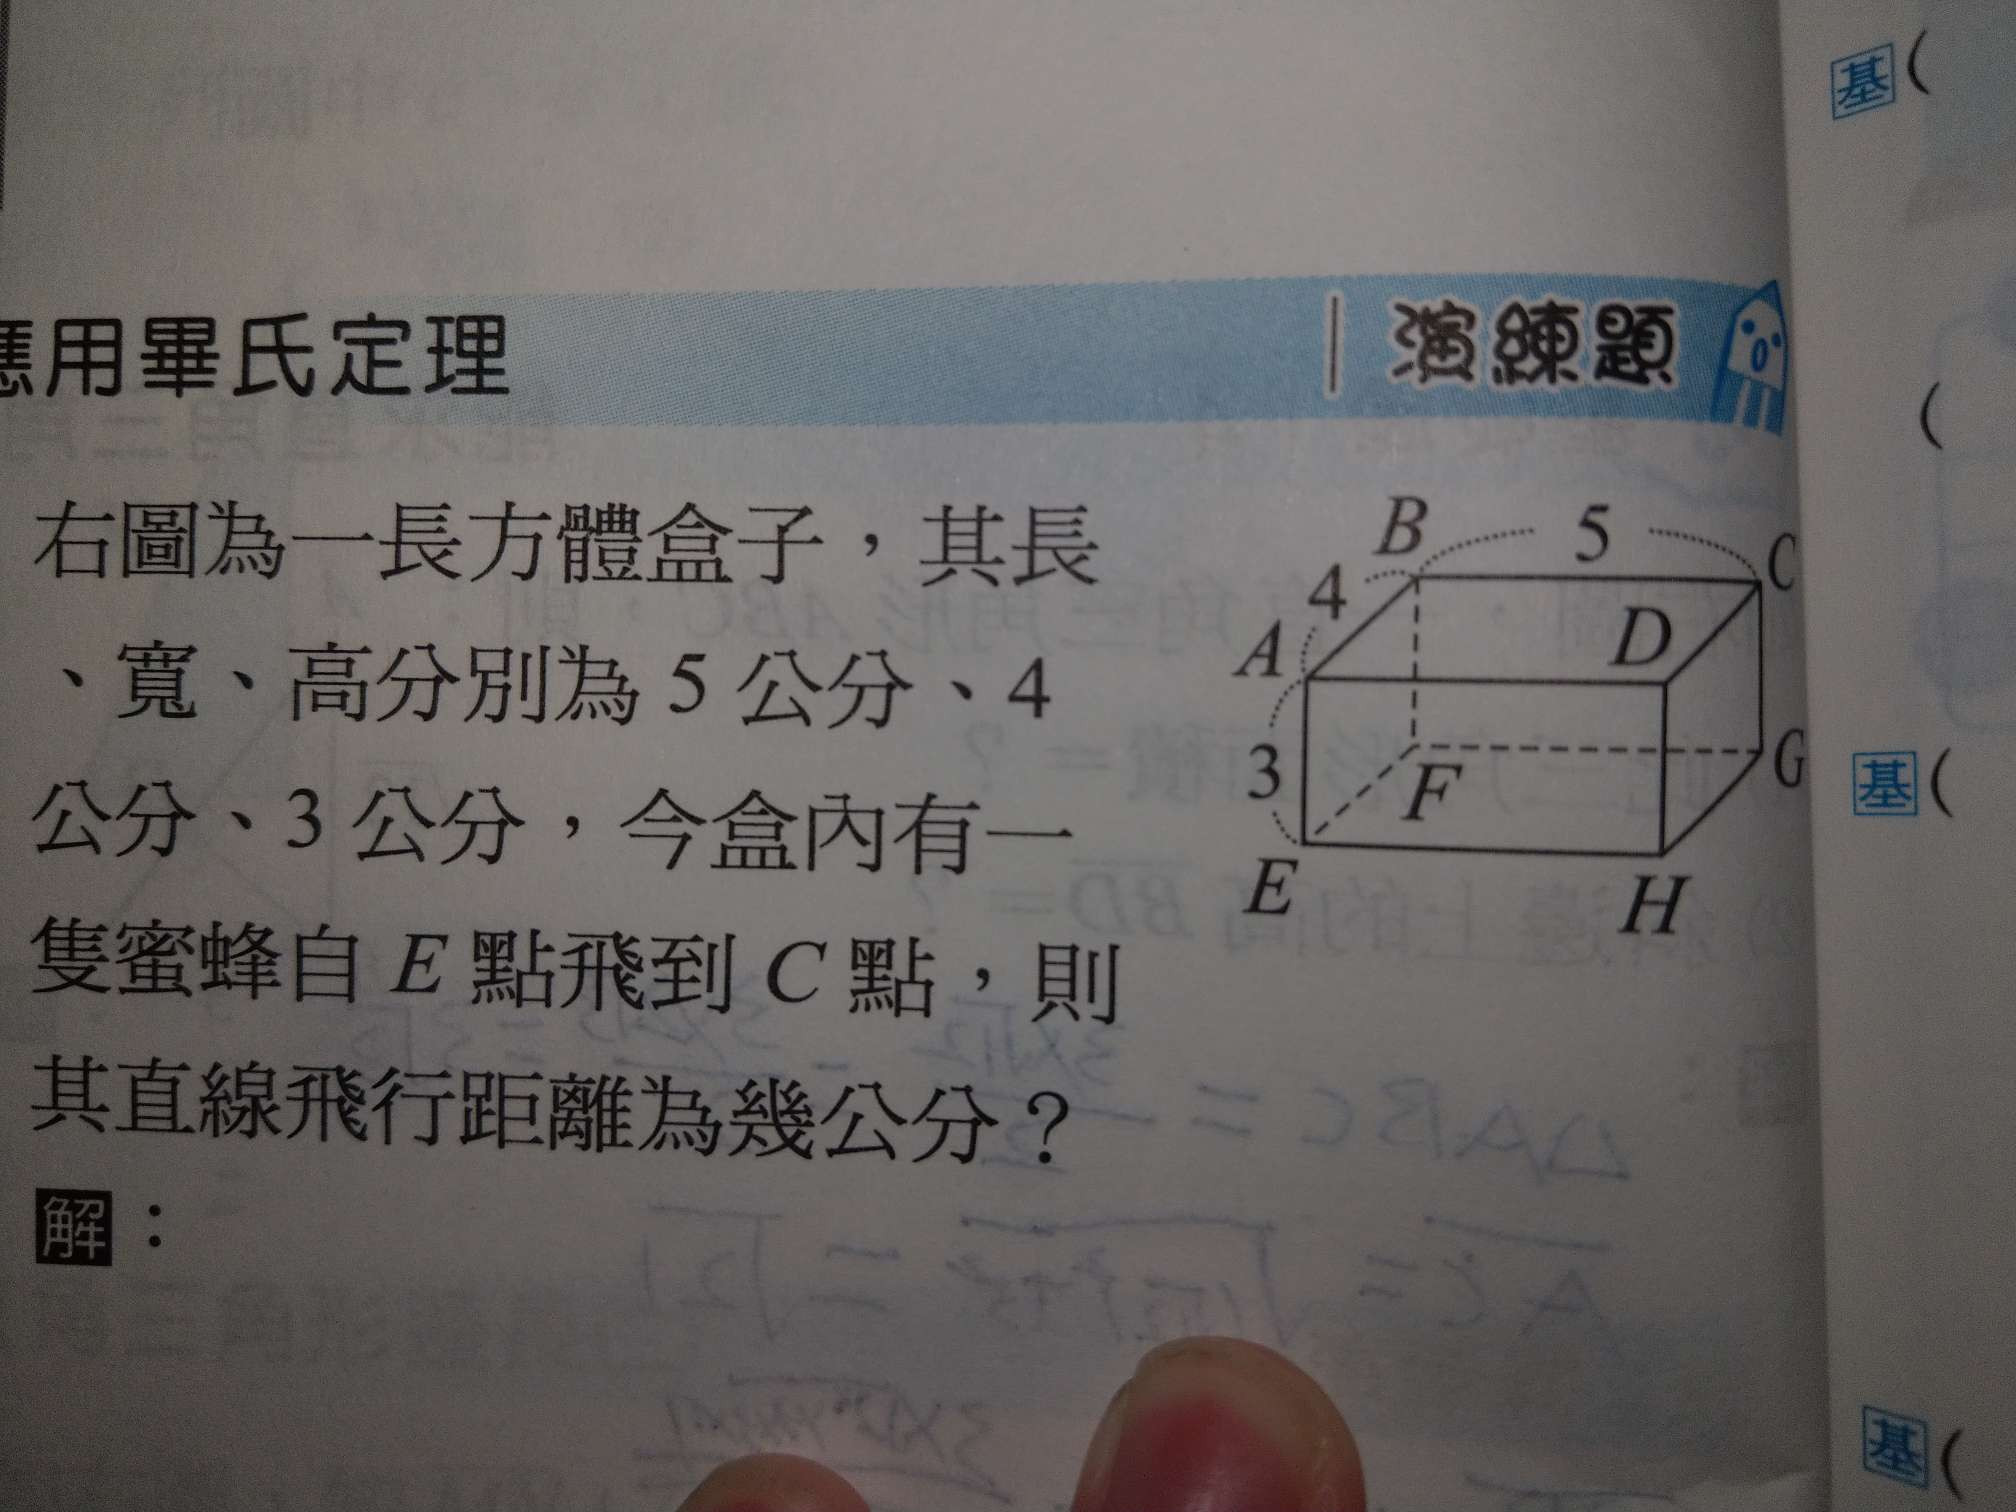 基(
應用畢氏定理 演練題
(
右圖為一長方體盒子，其長
、寬、高分別為 5 公分、4
公分、3 公分，今盒內有一
隻蜜蜂自 E 點飛到 C 點，則
其直線飛行距離為幾公分？
解：
B 5 C
4
A D
3 F G
E H
基(
基(